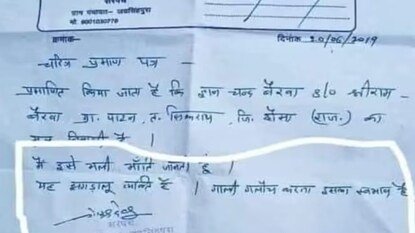 सरपंच
ग्राम पंचायत-
मो. 9001030778
क्रमांक
दिनांक 20/06/2019
- चरित्र प्रमाण पत्र -
प्रमाणित किया जाता है कि ज्ञान चन्द बैरवा S/o श्रीराम
बैरवा ग्रा. पाटन, त. सिकराय, जि. दौसा (राज.) का
मूल निवासी है ।
मैं इसे भली भाँति जानता हूँ ।
यह झगड़ालू व्यक्ति है । गाली गलौच करना इसका स्वभाव है
सरपंच